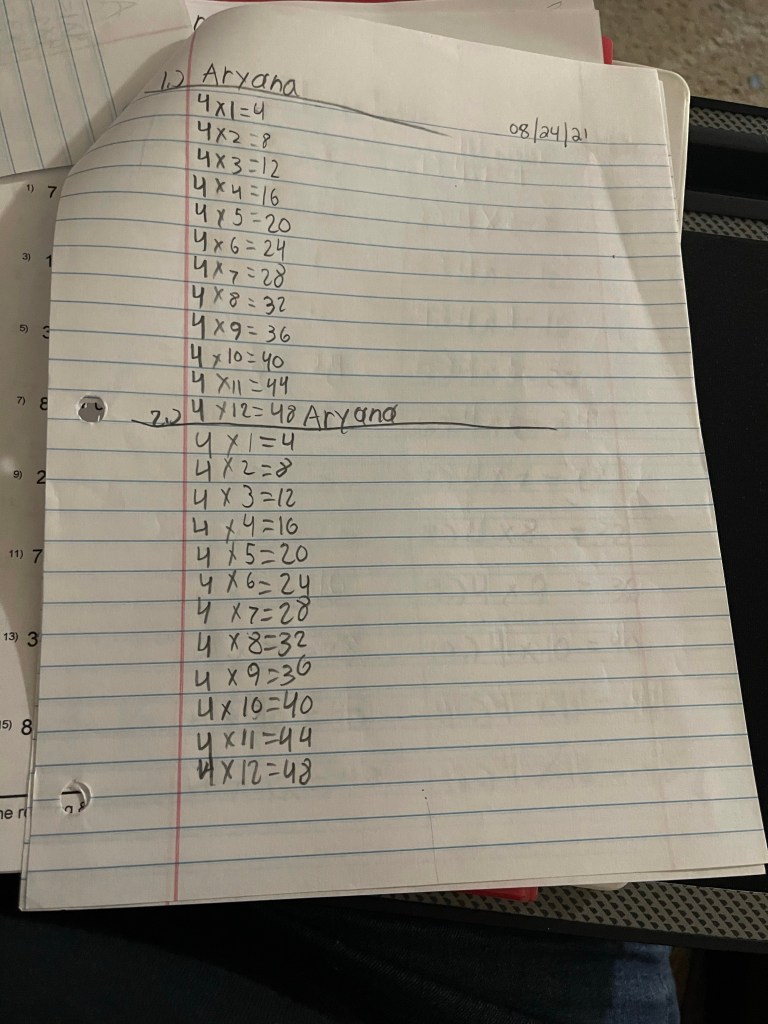 1.) Aryana
08/24/21
4x1=4
4x2=8
4x3=12
4x4=16
4x5=20
4x6=24
4x7=28
4x8=32
4x9=36
4x10=40
4x11=44
2.) 4x12=48 Aryana
4x1=4
4x2=8
4x3=12
4x4=16
4x5=20
4x6=24
4x7=28
4x8=32
4x9=36
4x10=40
4x11=44
4x12=48
1) 7
3) 1
5) 3
7) 8
9) 2
11) 7
13) 3
15) 8